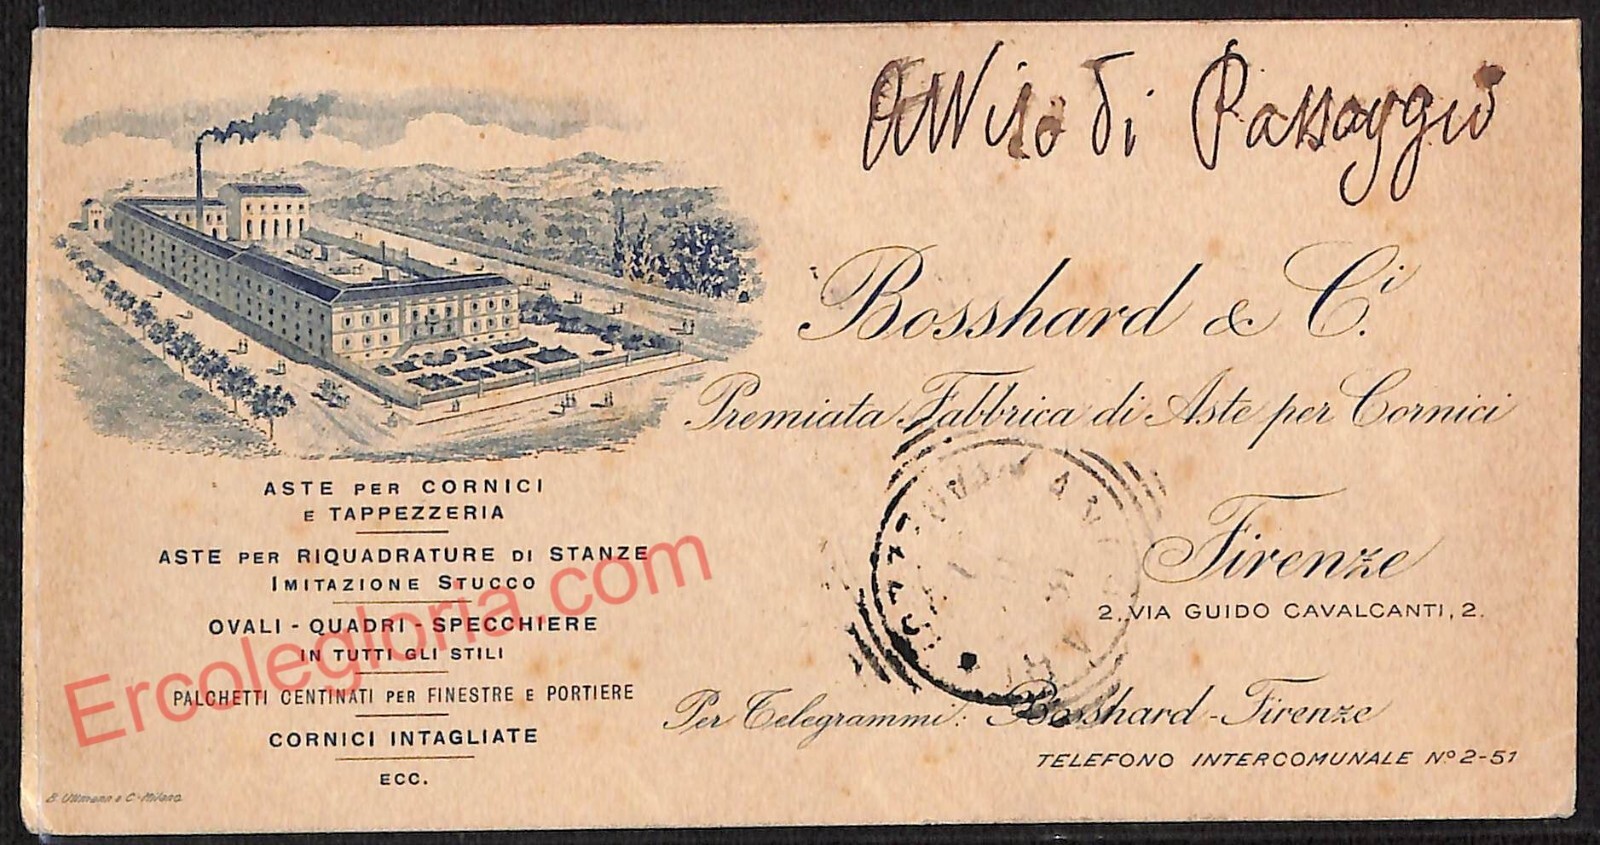 Avviso di Passaggio
Bosshard & Ci.
Premiata Fabbrica di Aste per Cornici
Firenze
2, VIA GUIDO CAVALCANTI, 2.
Per Telegrammi: Bosshard - Firenze
TELEFONO INTERCOMUNALE Nº 2-51
ASTE PER CORNICI
E TAPPEZZERIA
ASTE PER RIQUADRATURE DI STANZE
IMITAZIONE STUCCO
OVALI - QUADRI - SPECCHIERE
IN TUTTI GLI STILI
PALCHETTI CENTINATI PER FINESTRE E PORTIERE
CORNICI INTAGLIATE
ECC.
B. Ullmann e C.- Milano
Ercolegloria.com